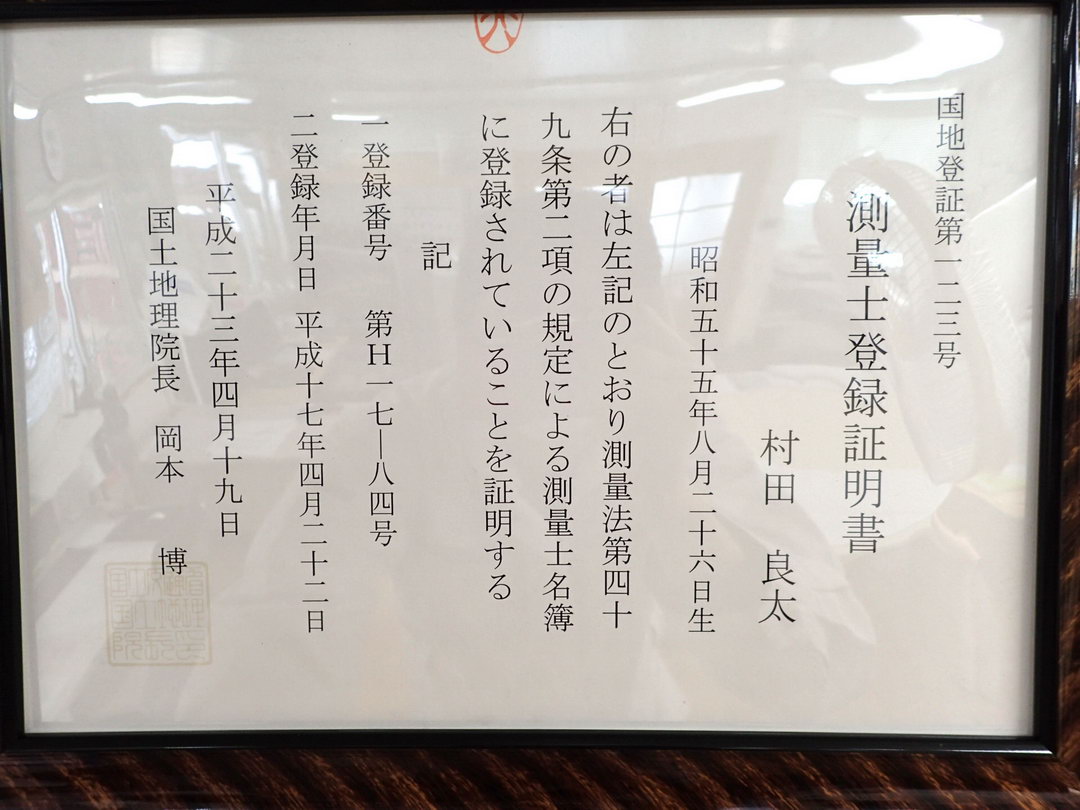 国地登証第一二三号
測量士登録証明書
村田 良太
昭和五十五年八月二十六日生
右の者は左記のとおり測量法第四十
九条第二項の規定による測量士名簿
に登録されていることを証明する
記
一登録番号 第H一七―八四号
二登録年月日 平成十七年四月二十二日
平成二十三年四月十九日
国土地理院長 岡本 博